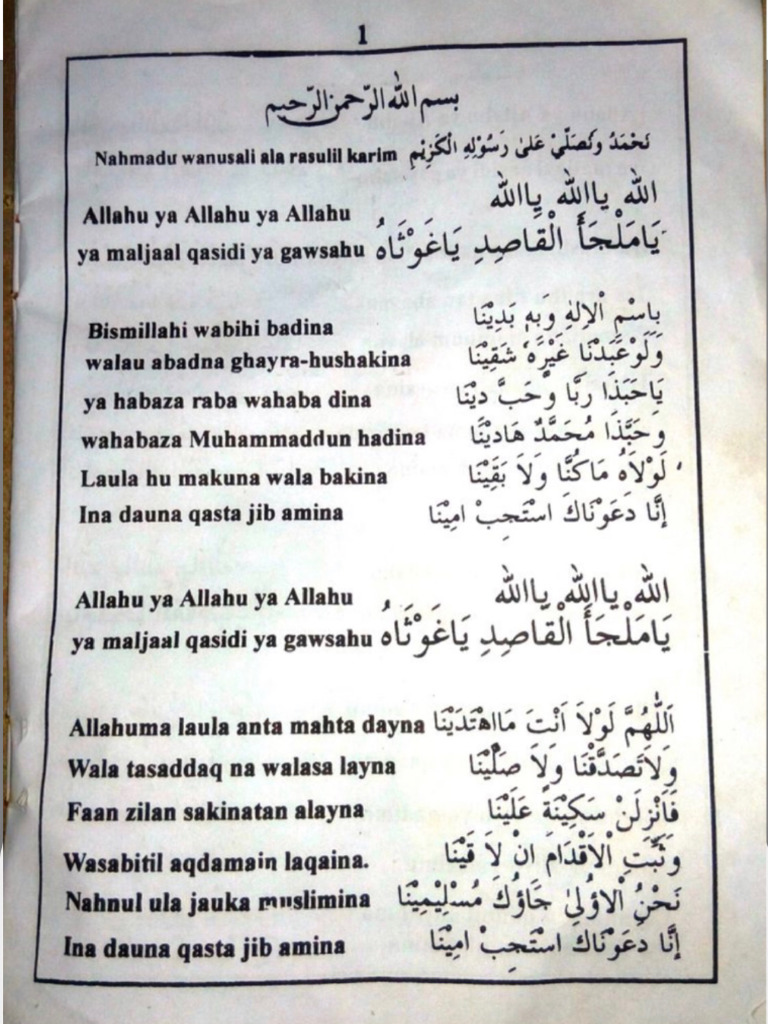 1
بسم الله الرّحمن الرّحيم
Nahmadu wanusali ala rasulil karim نَحْمَدُ وَنُصَلِّيْ عَلىٰ رَسُوْلِهِ الْكَرِيْم
Allahu ya Allahu ya Allahu الله ياالله ياالله
ya maljaal qasidi ya gawsahu يَامَلْجَأَ الْقَاصِدِ يَاغَوْثَاهُ
Bismillahi wabihi badina بِاسْمِ الْاِلهِ وَبِهِ بَدِيْنَا
walau abadna ghayra-hushakina وَلَوْعَبَدْنَا غَيْرَهُ شَقِيْنَا
ya habaza raba wahaba dina يَاحَبَذَا رَبًّا وَحَبَّ دِيْنَا
wahabaza Muhammaddun hadina وَحَبَّذَا مُحَمَّدٌ هَادِيْنَا
Laula hu makuna wala bakina لَوْلَاهُ مَاكُنَّا وَلَا بَقِيْنَا
Ina dauna qasta jib amina اِنَّا دَعَوْنَاكَ اسْتَجِبْ امِيْنَا
Allahu ya Allahu ya Allahu الله ياالله ياالله
ya maljaal qasidi ya gawsahu يَامَلْجَأَ الْقَاصِدِ يَاغَوْثَاهُ
Allahuma laula anta mahta dayna اَللّٰهُمَّ لَوْلَا اَنْتَ مَااهْتَدَيْنَا
Wala tasaddaq na walasa layna وَلَاتَصَدَّقْنَا وَلَا صَلَّيْنَا
Faan zilan sakinatan alayna فَانْزِلَنْ سَكِيْنَةً عَلَيْنَا
Wasabitil aqdamain laqaina. وَثَبِّتِ الْاَقْدَامَ اِنْ لَا قَيْنَا
Nahnul ula jauka muslimina نَحْنُ الْاُوْلىٰ جَاؤُكَ مُسْلِيمِيْنَا
Ina dauna qasta jib amina اِنَّا دَعَوْنَاكَ اسْتَجِبْ امِيْنَا